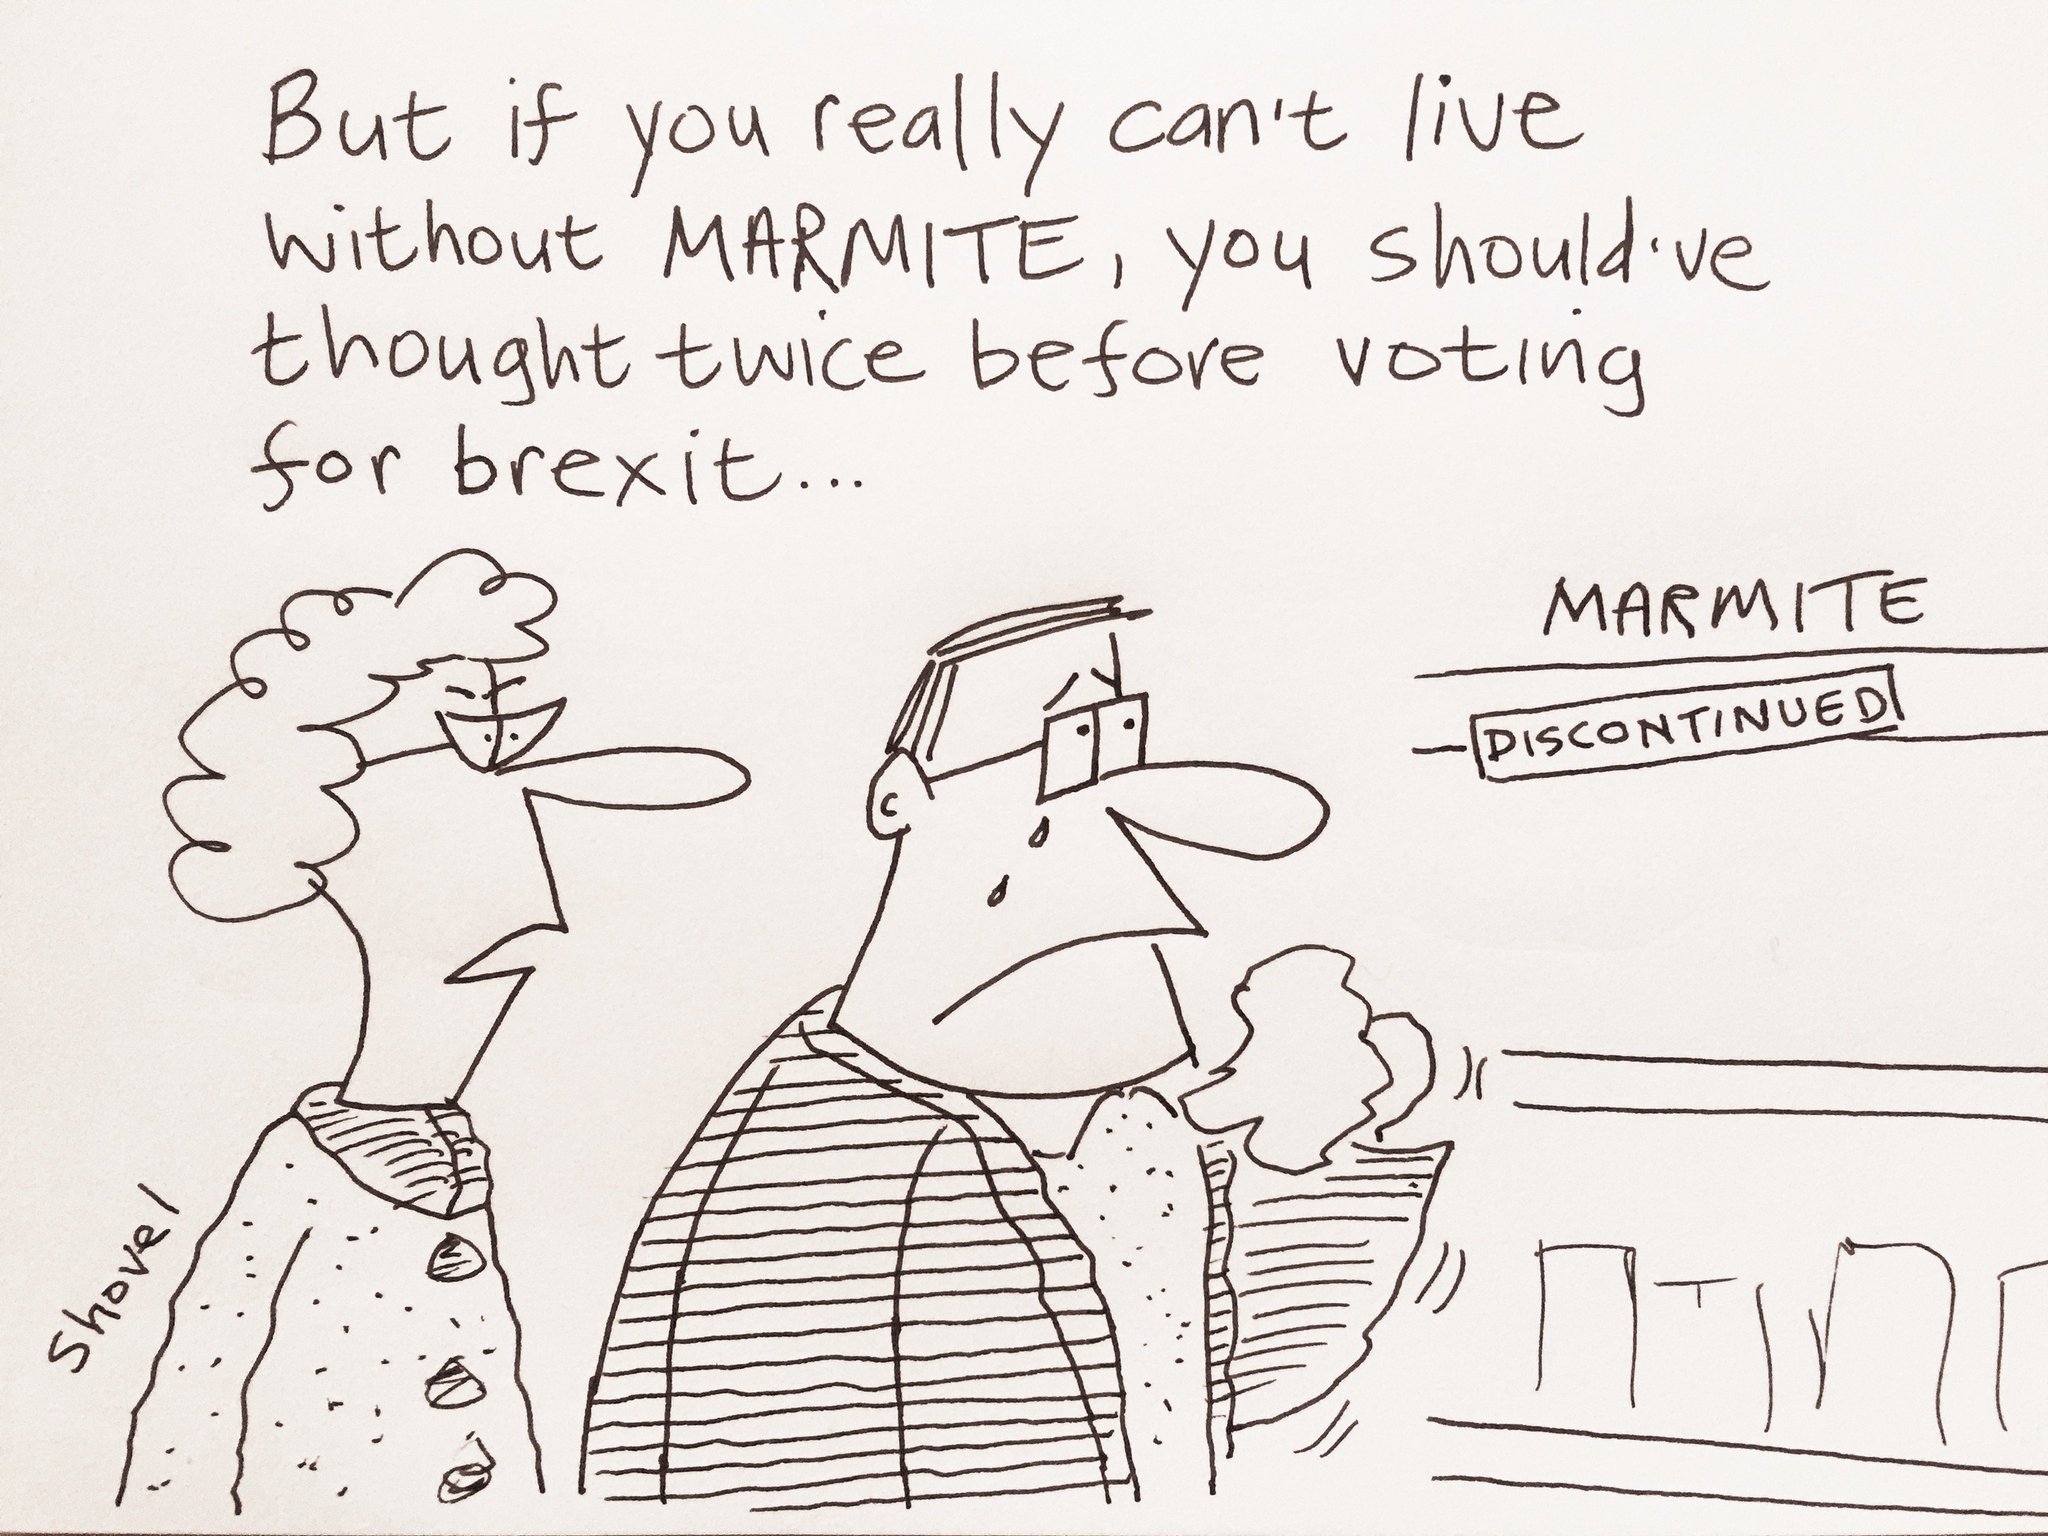 But if you really can't live
without MARMITE, you should've
thought twice before voting
for brexit...
MARMITE
DISCONTINUED
Shovel